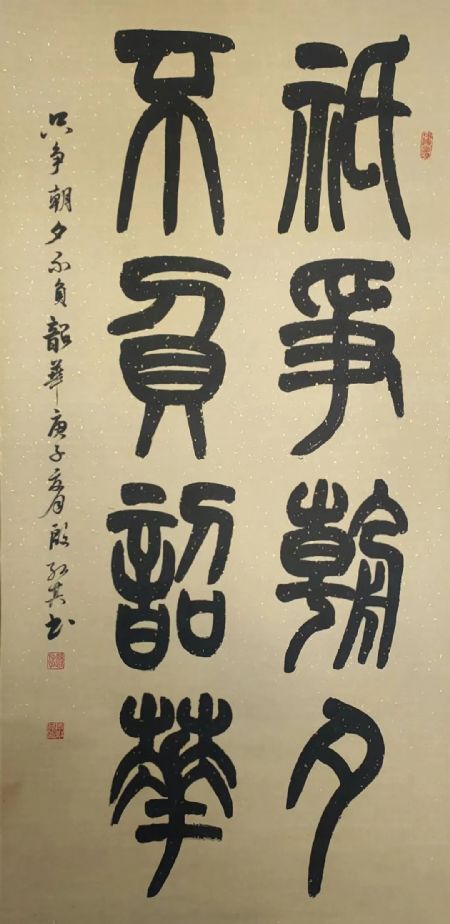 祇爭朝夕
不負韶華
只争朝夕不負韶華庚子
书